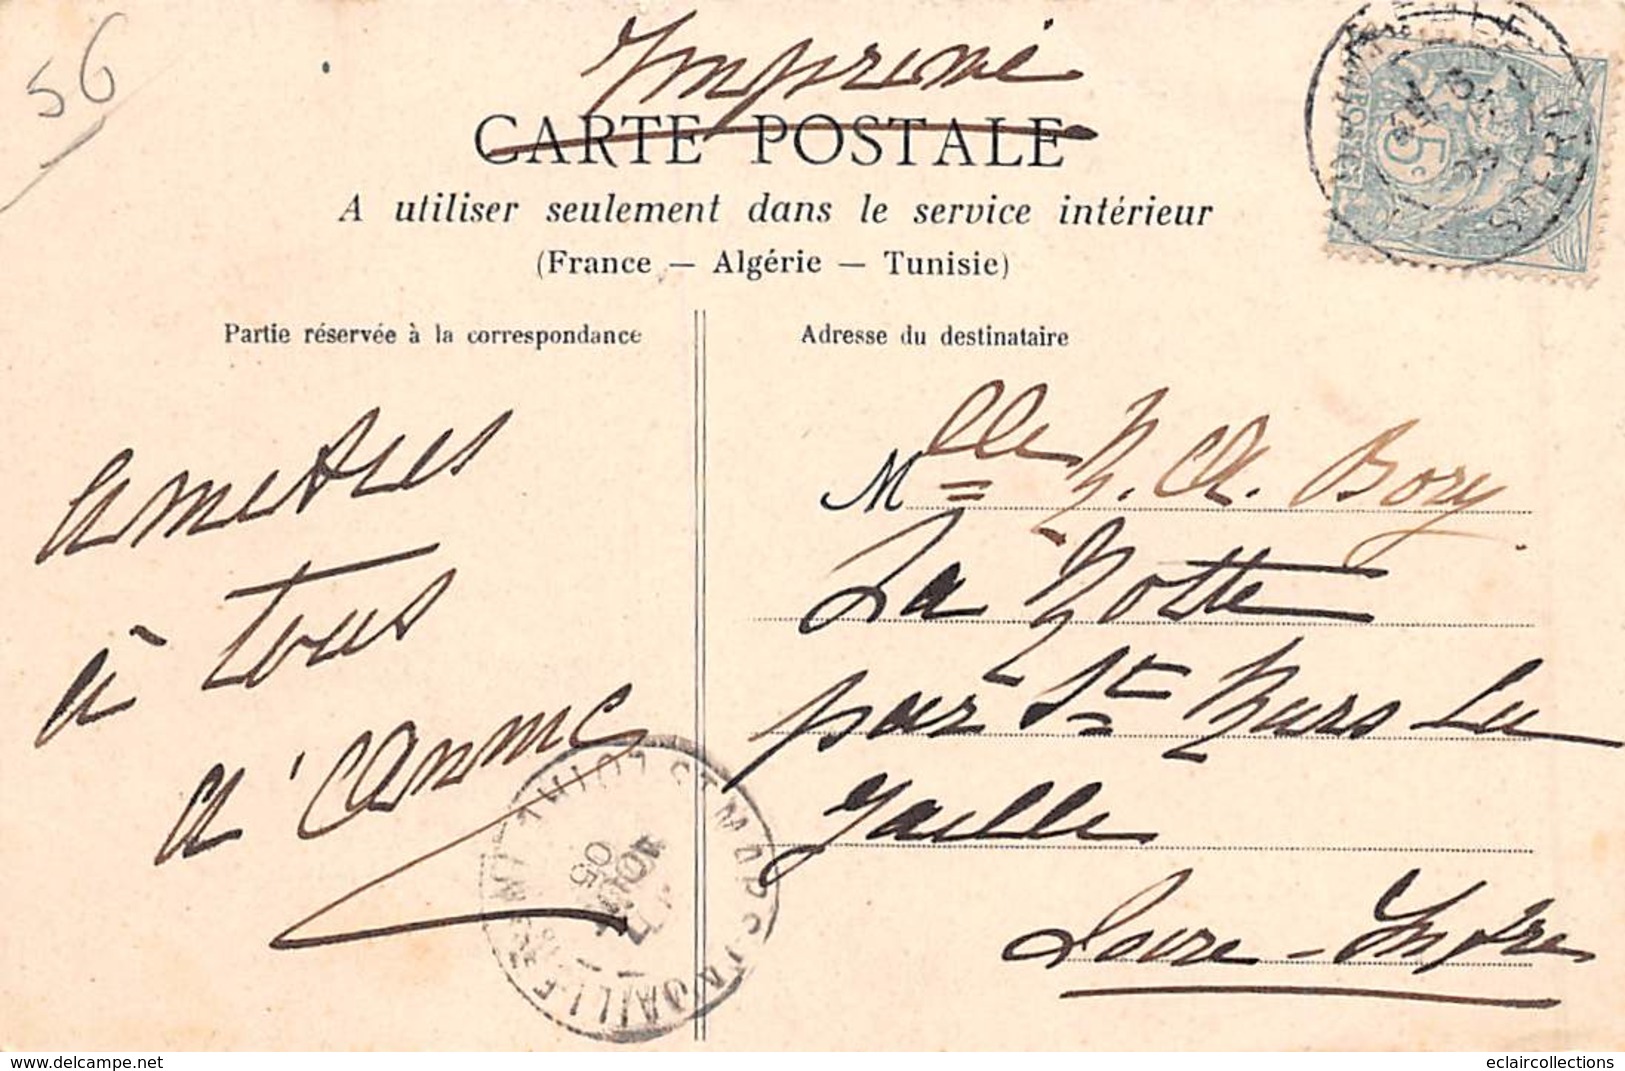 56
Imprimé
CARTE POSTALE
A utiliser seulement dans le service intérieur
(France — Algérie — Tunisie)
Partie réservée à la correspondance
Adresse du destinataire
5c
Mlle M. A. Bory
La Motte
par St Mars La
Jaille
Loire-Infre
à tous
ST MARS-LA-JAILLE
LOIRE-INFRE
05
www.delcampe.net
eclaircollections